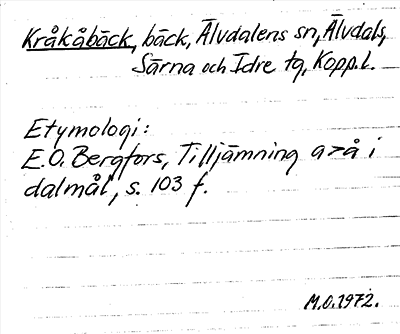 Kråkåbäck, bäck, Älvdalens sn, Älvdals,
Särna och Idre tg, Kopp.l.
Etymologi:
E.O. Bergfors, Tilljämning a>å i
dalmål, s. 103 f.
M.O.1972.